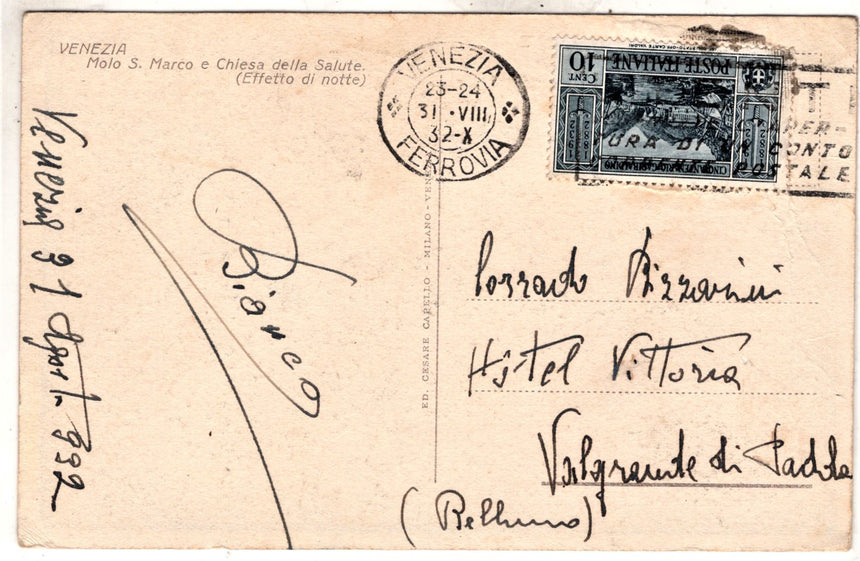 VENEZIA
Molo S. Marco e Chiesa della Salute.
(Effetto di notte)
Venezia 31 Agosto 932
Bianco
ED. CESARE CAPELLO - MILANO - VEN
VENEZIA
23-24
31 · VIII
32-X
FERROVIA
CENT. 10
POSTE ITALIANE
1882
1932
CINQVANTENARIO GARIBALDINO
URA DI UN CONTO
POSTALE
Corrado
Hotel Vittoria
Valgrande di Padola
(Belluno)